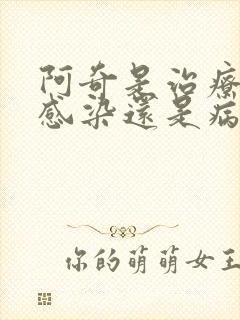 阿奇是治療
感染還是病
你的萌萌女王